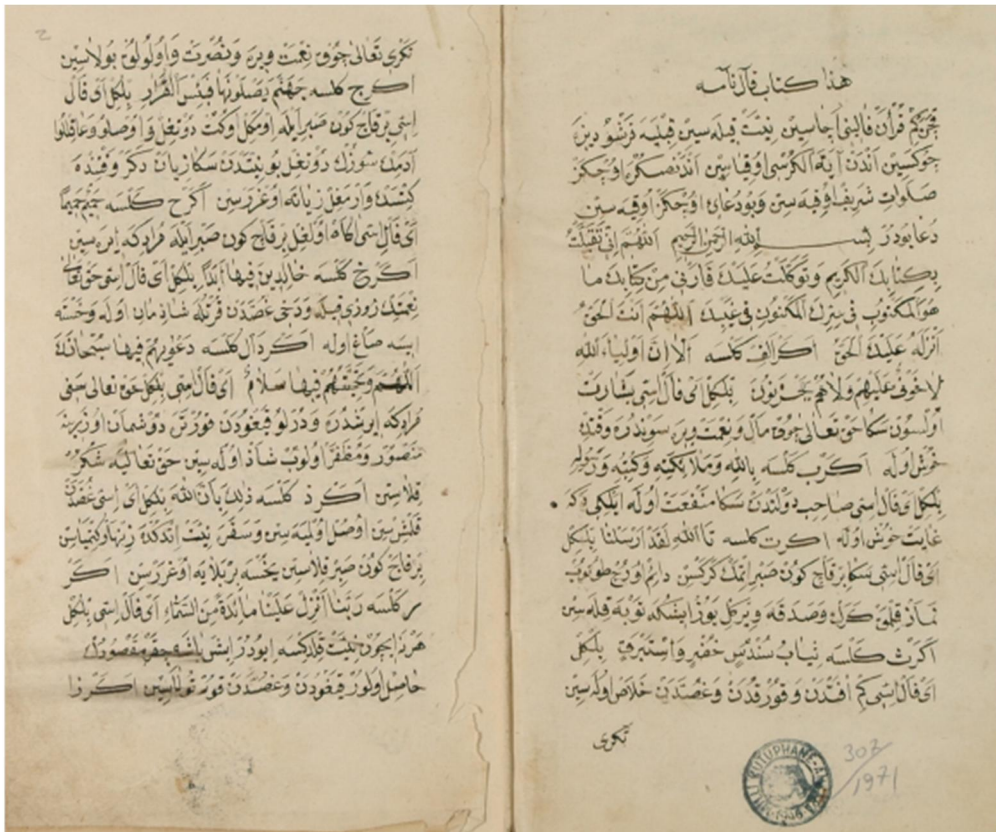 هذا كتاب فال نامه
قچن كم قرآن فالینی آچاسین نیت قیله سین قبلیه قرشو دیزه
چوكسین اندن آیة الكرسی اوقیاسین اندنصكره اوچكز
صلوات شریف اوقیه سین و بو دعای اوچكز اوقیه سین
دعا بودر بسم الله الرحمن الرحیم اللهم انی تفألت
بكتابك الكریم و توكلت علیك فارنی من كتابك ما
هو المكتوب فی سرك المكنون فی غیبك اللهم انت الحق
انزله علیك الحق اكر الف كلسه الا ان اولیاء الله
لا خوف علیهم ولا هم یحزنون بلكل ای فال اسی بشارت
اولسون سكا حق تعالی چوق مال و نعمت ویره سوندره وقتك
خوش اوله اكر ب كلسه بالله وملائكته وكتبه ورسله
بلكل ای فال اسی صاحب دولتدن سكا منفعت اوله
غایت خوش اوله اكر ت كلسه تالله لقد ارسلنا بلكل
ای فال اسی سكا بر قاچ كون صبر اتمك كركسن دایم اوروج طوتوب
نماز قلمق كرك وصدقه ویرمك یوز ایشكه توبه قیله سن
اكر ث كلسه ثیاب سندس خضر واستبرق بلكل
ای فال اسی كم آفتدن و قورقودن و غصه‌دن خلاص اوله سین
تكری
تكری تعالی چوق نعمت ویره و نصرت و اولولق بولاسین
اكر ج كلسه جهنم یصلونها فبئس القرار بلكل ای فال
اسی بر قاچ كون صبر ایله
آدمك سوزك دوتغل بو نیتدن سكا زیان دكر
كتسه زیانه اوغررسین اكر ح كلسه حمیم حمیما
ای فال اسی آكاه اولغل بر قاچ كون صبر ایله مرادكه ایره سین
اكر خ كلسه خالدین فیها ابدا بلكل ای فال اسی حق تعالی
نعمتك روزی قیله و دخی غصه‌دن قرتله شاذمان اوله و خسته
ایسه صاغ اوله اكر دال كلسه دعویهم فیها سبحانك
اللهم وتحیتهم فیها سلام ای فال اسی بلكل حق تعالی سنی
مرادكه ایرشدره و درلو قیغودن قورتره دوشمان اوزرینه
منصور و مظفر اولوب شاذ اوله سین حق تعالیه شكر
قلاسین اكر ذ كلسه ذلك بان الله بلكل ای اسی غصه‌دن
قلمش سن اوصل اولمیه سین وسفره نیت اتدكده زنهار كتمیاسن
بر قاچ كون صبر قلاسین یخسه بر بلایه اوغررسن اكر
ر كلسه ربنا انزل علینا مائدة من السماء ای فال اسی بلكل
هر نه ایچون نیت قلدكسه ایودر ایش باشه چقر مقصودك
حاصل اولور قیغودن و غصه‌دن قورتولاسین اكر زا
307
1971